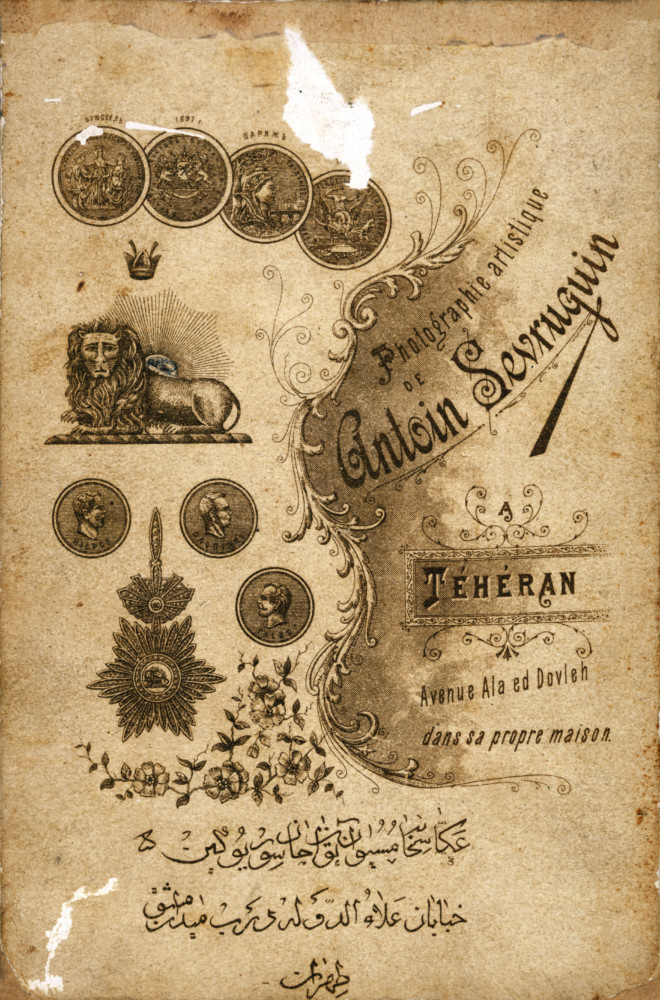 БРЮССЕЛЬ
1897 г
ПАРИЖЪ
Photographie artistique
DE
Antoin Sevruguin
A
TÉHÉRAN
Avenue Ala ed Dovleh
dans sa propre maison.
NIEPCE
DAGUERRE
TALBOT
عکاسخانه مسیو آنتوان خان سوریوگین
خیابان علاء الدوله نزدیک میدان مشق
طهران